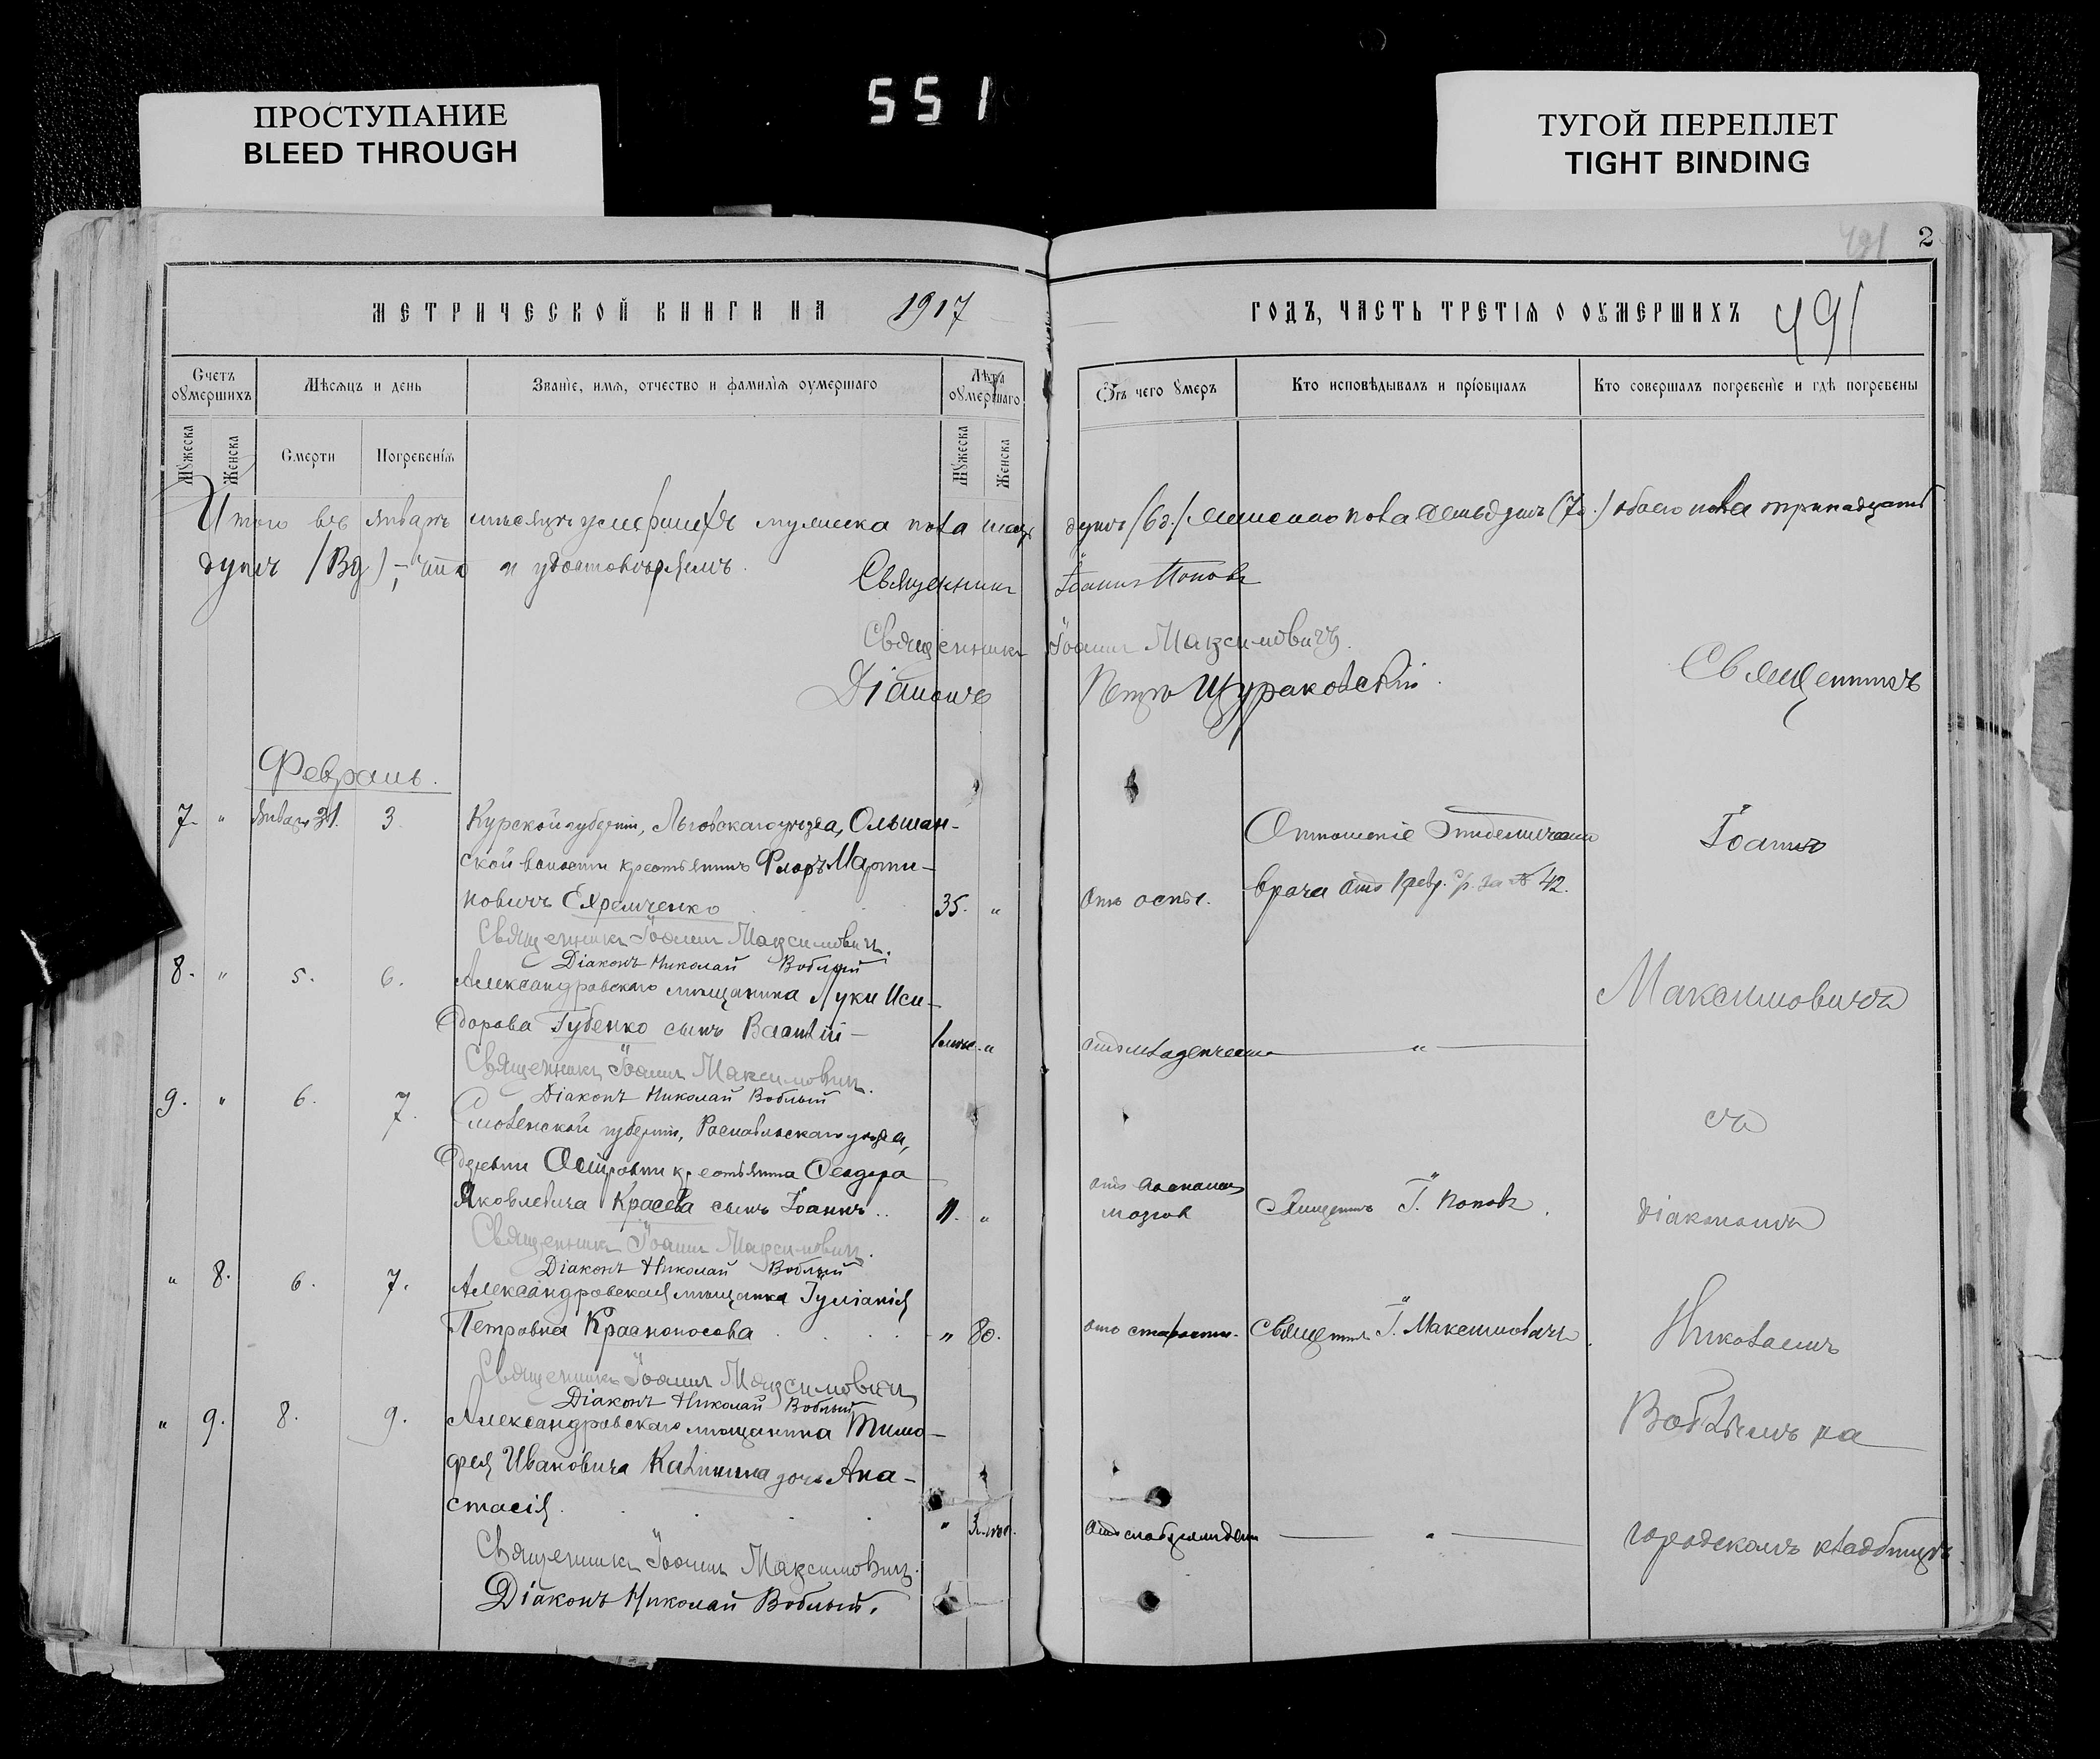 551
ПРОСТУПАНИЕ
BLEED THROUGH
ТУГОЙ ПЕРЕПЛЕТ
TIGHT BINDING
2
МЕТРИЧЕСКОЙ КНИГИ НА 1917
ГОДЪ, ЧАСТЬ ТРЕТІЯ О ОУМЕРШИХЪ 491
Счетъ оумершихъ
Мѣсяцъ и день
Званіе, имя, отчество и фамилія оумершаго
Лѣта оумершаго
Отъ чего умеръ
Кто исповѣдывалъ и пріобщалъ
Кто совершалъ погребеніе и гдѣ погребены
Мужеска
Женска
Смерти
Погребенія
Мужеска
Женска
Итого въ январѣ мѣсяцѣ умершихъ мужеска пола шесть душъ (6 д.) женскаго пола семь душъ (7 д.) обоего пола тринадцать
душъ и удостовѣряемъ.
Священникъ Іоаннъ Поповъ
Священникъ Іоаннъ Максимовичъ.
Діаконъ Петръ Щураковскій.
Священникъ
Февраль.
7. " Январь 31. 3. Курской губерніи, Льговскаго уѣзда, Ольшан-
ской волости крестьянинъ Флоръ Марти-
новичъ Ехремченко 35. " отъ оспы.
Отношеніе Эпидемическаго
врача отъ 1 февр. с/г. за № 42.
Іоаннъ
Священникъ Іоаннъ Максимовичъ.
Діаконъ Николай Воблый
8. " 5. 6. Александровскаго мѣщанина Луки Иси-
дорова Губенко сынъ Василій "
Максимовичъ
Священникъ Іоаннъ Максимовичъ.
Діаконъ Николай Воблый
9. " 6. 7. Смоленской губерніи, Рославльскаго уѣзда,
деревни крестьянина Ѳеодора
Яковлевича Красева сынъ Іоаннъ 11. " мозгов Священникъ І. Поповъ.
съ
діакономъ
Священникъ Іоаннъ Максимовичъ.
Діаконъ Николай Воблый
" 8. 6. 7. Александровская мѣщанка Іуліанія
Петровна Красноносова " 80. отъ старости. Священникъ І. Максимовичъ.
Николаемъ
Священникъ Іоаннъ Максимовичъ
Діаконъ Николай Воблый
" 9. 8. 9. Александровскаго мѣщанина Тимо-
фея Ивановича Калинина дочь Ана-
стасія. "
Воблымъ на
городскомъ кладбищѣ
Священникъ Іоаннъ Максимовичъ.
Діаконъ Николай Воблый.